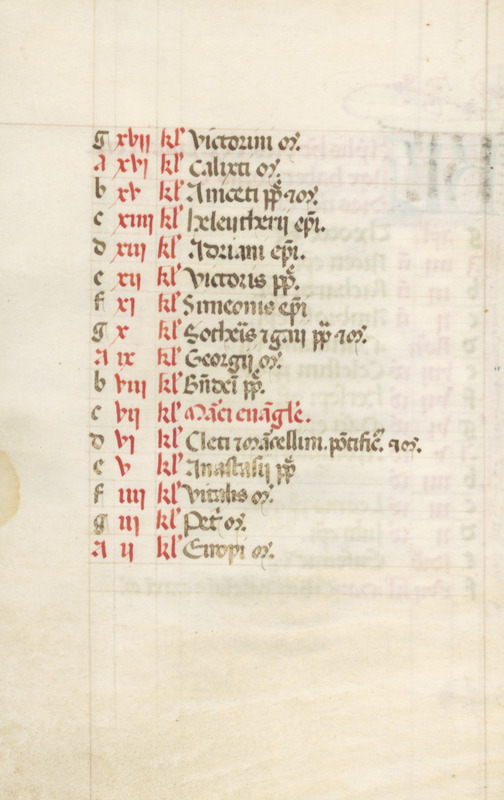 g xvii kl' Victorini m̄.
A xvi kl' Calixti m̄.
b xv kl' Aniceti pp̄ ⁊ m̄.
c xiiii kl' heleutherij ep̄i.
d xiii kl' Adriani ep̄i.
e xii kl' Victoris pp̄.
f xi kl' Simeonis ep̄i
g x kl' Sotheis ⁊ gaii pp̄ ⁊ m̄.
A ix kl' Georgij m̄.
b viii kl' pp̄.
c vii kl' Marci euāgl'e.
d vi kl' Cleti ⁊ marcellini. pōtific̄. ⁊ m̄.
e v kl' Anastasij pp̄
f iiii kl' Vitalis m̄.
g iii kl' Pet' m̄.
A ii kl' Eutropi m̄.